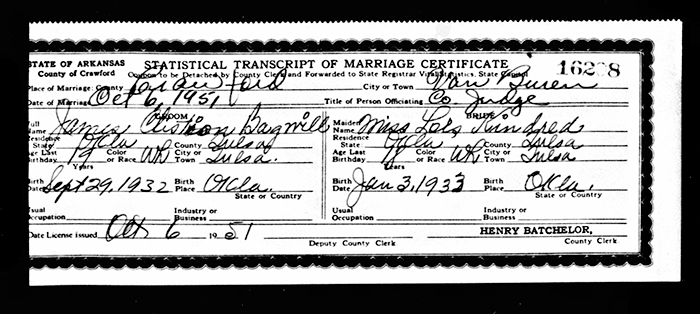 STATE OF ARKANSAS STATISTICAL TRANSCRIPT OF MARRIAGE CERTIFICATE
County of Crawford Coupon to be Detached by County Clerk and Forwarded to State Registrar Vital Statistics, State Capitol 16298
Place of Marriage: County Crawford City or Town Van Buren
Date of Marriage Oct 6, 1951 Title of Person Officiating Co. Judge
GROOM BRIDE
Full Name James Bagwill Maiden Name Miss Lois Kindred
Residence State Okla County Tulsa Residence State Okla County Tulsa
Age Last Birthday 19 Years Color or Race Wh City or Town Tulsa. Age Last Birthday 18 Years Color or Race Wh City or Town Tulsa
Birth Date Sept 29, 1932 Birth Place Okla. Birth Date Jan 3, 1933 Birth Place Okla.
State or Country State or Country
Usual Occupation Industry or Business Usual Occupation Industry or Business
Date License issued Oct 6 1951 HENRY BATCHELOR,
Deputy County Clerk County Clerk